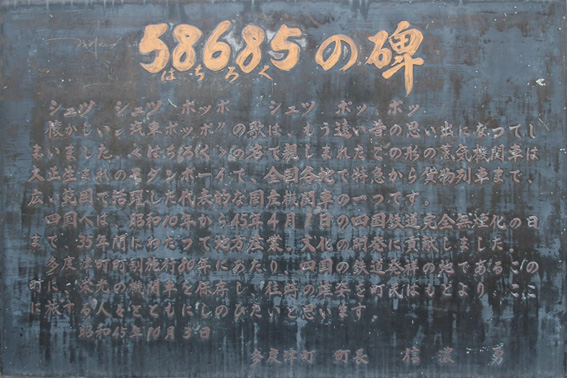 58685の碑
はちろく
シュッ シュッ ポッポ シュッ ポッ ポッ
懐かしい〝汽車ポッポ〟の歌は、もう遠い昔の思い出になってし
まいました。〝はちろく〟の名で親しまれたこの形の蒸気機関車は
大正生まれのモダンボーイで、全国各地で特急から貨物列車まで、
広い範囲で活躍した代表的な国産機関車の一つです。
四国へは、昭和10年から45年4月1日の四国鉄道完全無煙化の日
まで、35年間にわたって地方産業、文化の開発に貢献しました。
多度津町町制施行80年にあたり、四国の鉄道発祥の地であるこの
町に、栄光の機関車を保存し、往時の盛栄を町民はもとより、ここ
に旅する人々とともにしのびたいと思います。
昭和45年10月 日
多度津町 町長 信濃 勇